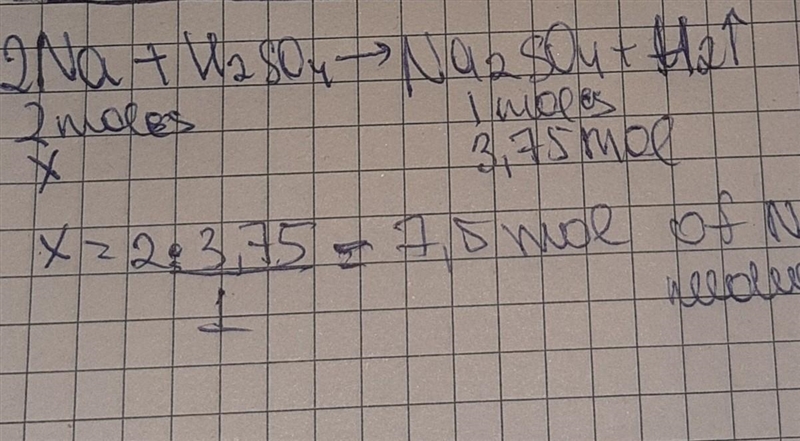 2Na + H2SO4 → Na2SO4 + H2↑
2 moles 1 moles
x 3,75 mol
x = 2·3,75 = 7,5 mol of N
1